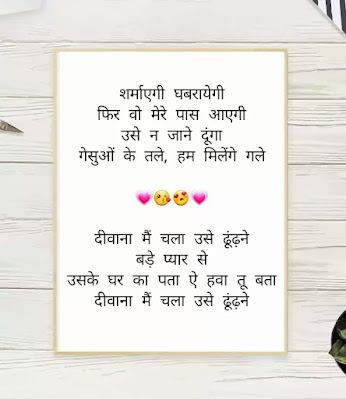 शर्माएगी घबरायेगी
फिर वो मेरे पास आएगी
उसे न जाने दूंगा
गेसुओं के तले, हम मिलेंगे गले
💗😘😍💗
दीवाना मैं चला उसे ढूंढ़ने
बड़े प्यार से
उसके घर का पता ऐ हवा तू बता
दीवाना मैं चला उसे ढूंढ़ने